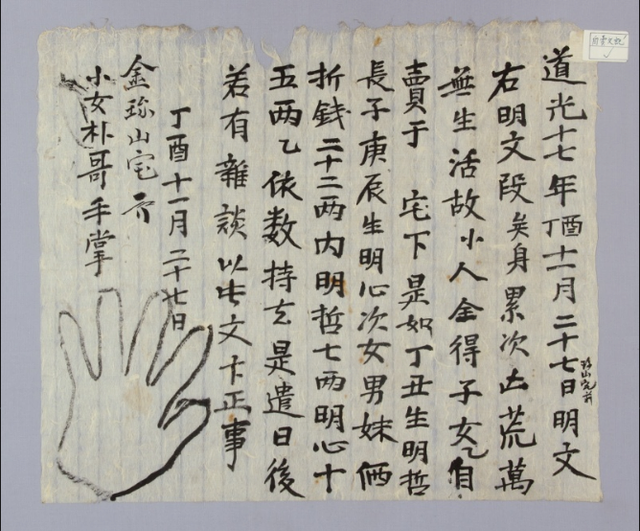 道光十七年丁酉十一月二十七日明文
珍山宅前
右明文段矣身累次凶荒萬
無生活故小人金得子女乙自
賣于 宅下是如丁丑生明哲
長子庚辰生明心次女男妹価
折錢二十二両内明哲七両明心十
五両乙依数持去是遣日後
若有雜談以此文卞正事
丁酉十一月二十七日
金珍山宅前
小女朴哥手掌
自賣文記